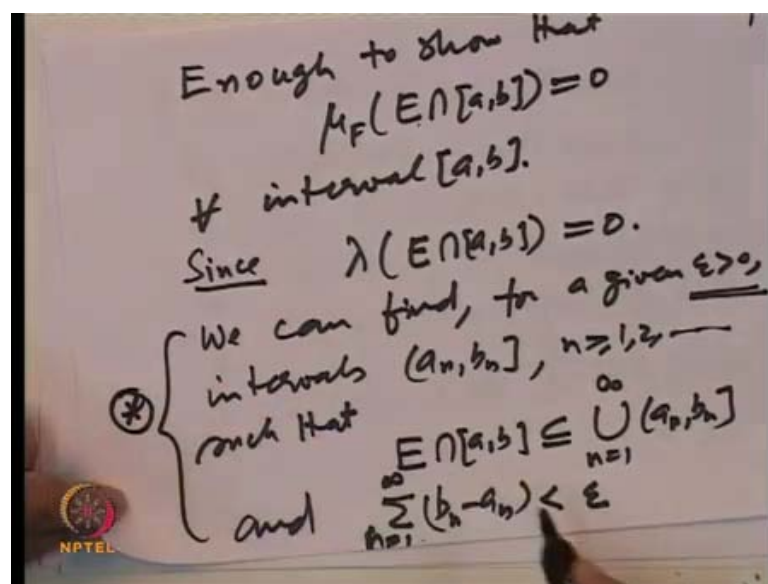 Enough to show that
μ_F(E∩[a,b])=0
∀ interval [a,b].
Since λ(E∩[a,b])=0.
We can find, for a given ε>0,
intervals (a_n,b_n], n≥1,2,——
such that
E∩[a,b] ⊆ ⋃_{n=1}^{∞} (a_n,b_n]
and ∑_{n=1}^{∞} (b_n-a_n) < ε
(*)
NPTEL